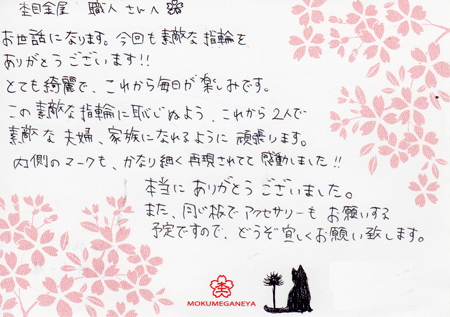 杢目金屋 職人さんへ
お世話になります。今回も素敵な指輪を
ありがとうございます!!
とても綺麗で、これから毎日が楽しみです。
この素敵な指輪に恥じぬよう、これから2人で
素敵な夫婦、家族になれるように頑張ります。
内側のマークも、かなり細く再現されてて感動しました!!
本当にありがとうございました。
また、同じ板でアクセサリーもお願いする
予定ですので、どうぞ宜しくお願い致します。
杢
MOKUMEGANEYA